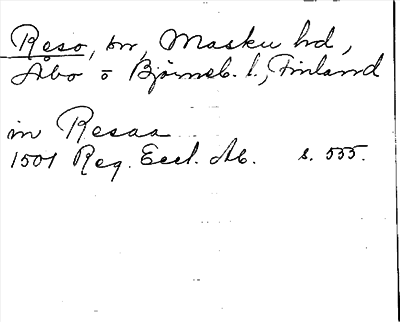 Reso, sn, Masku hd,
Åbo o Björneb. l., Finland
in Resaa
1501 Reg. Eccl. Ab. s. 555.